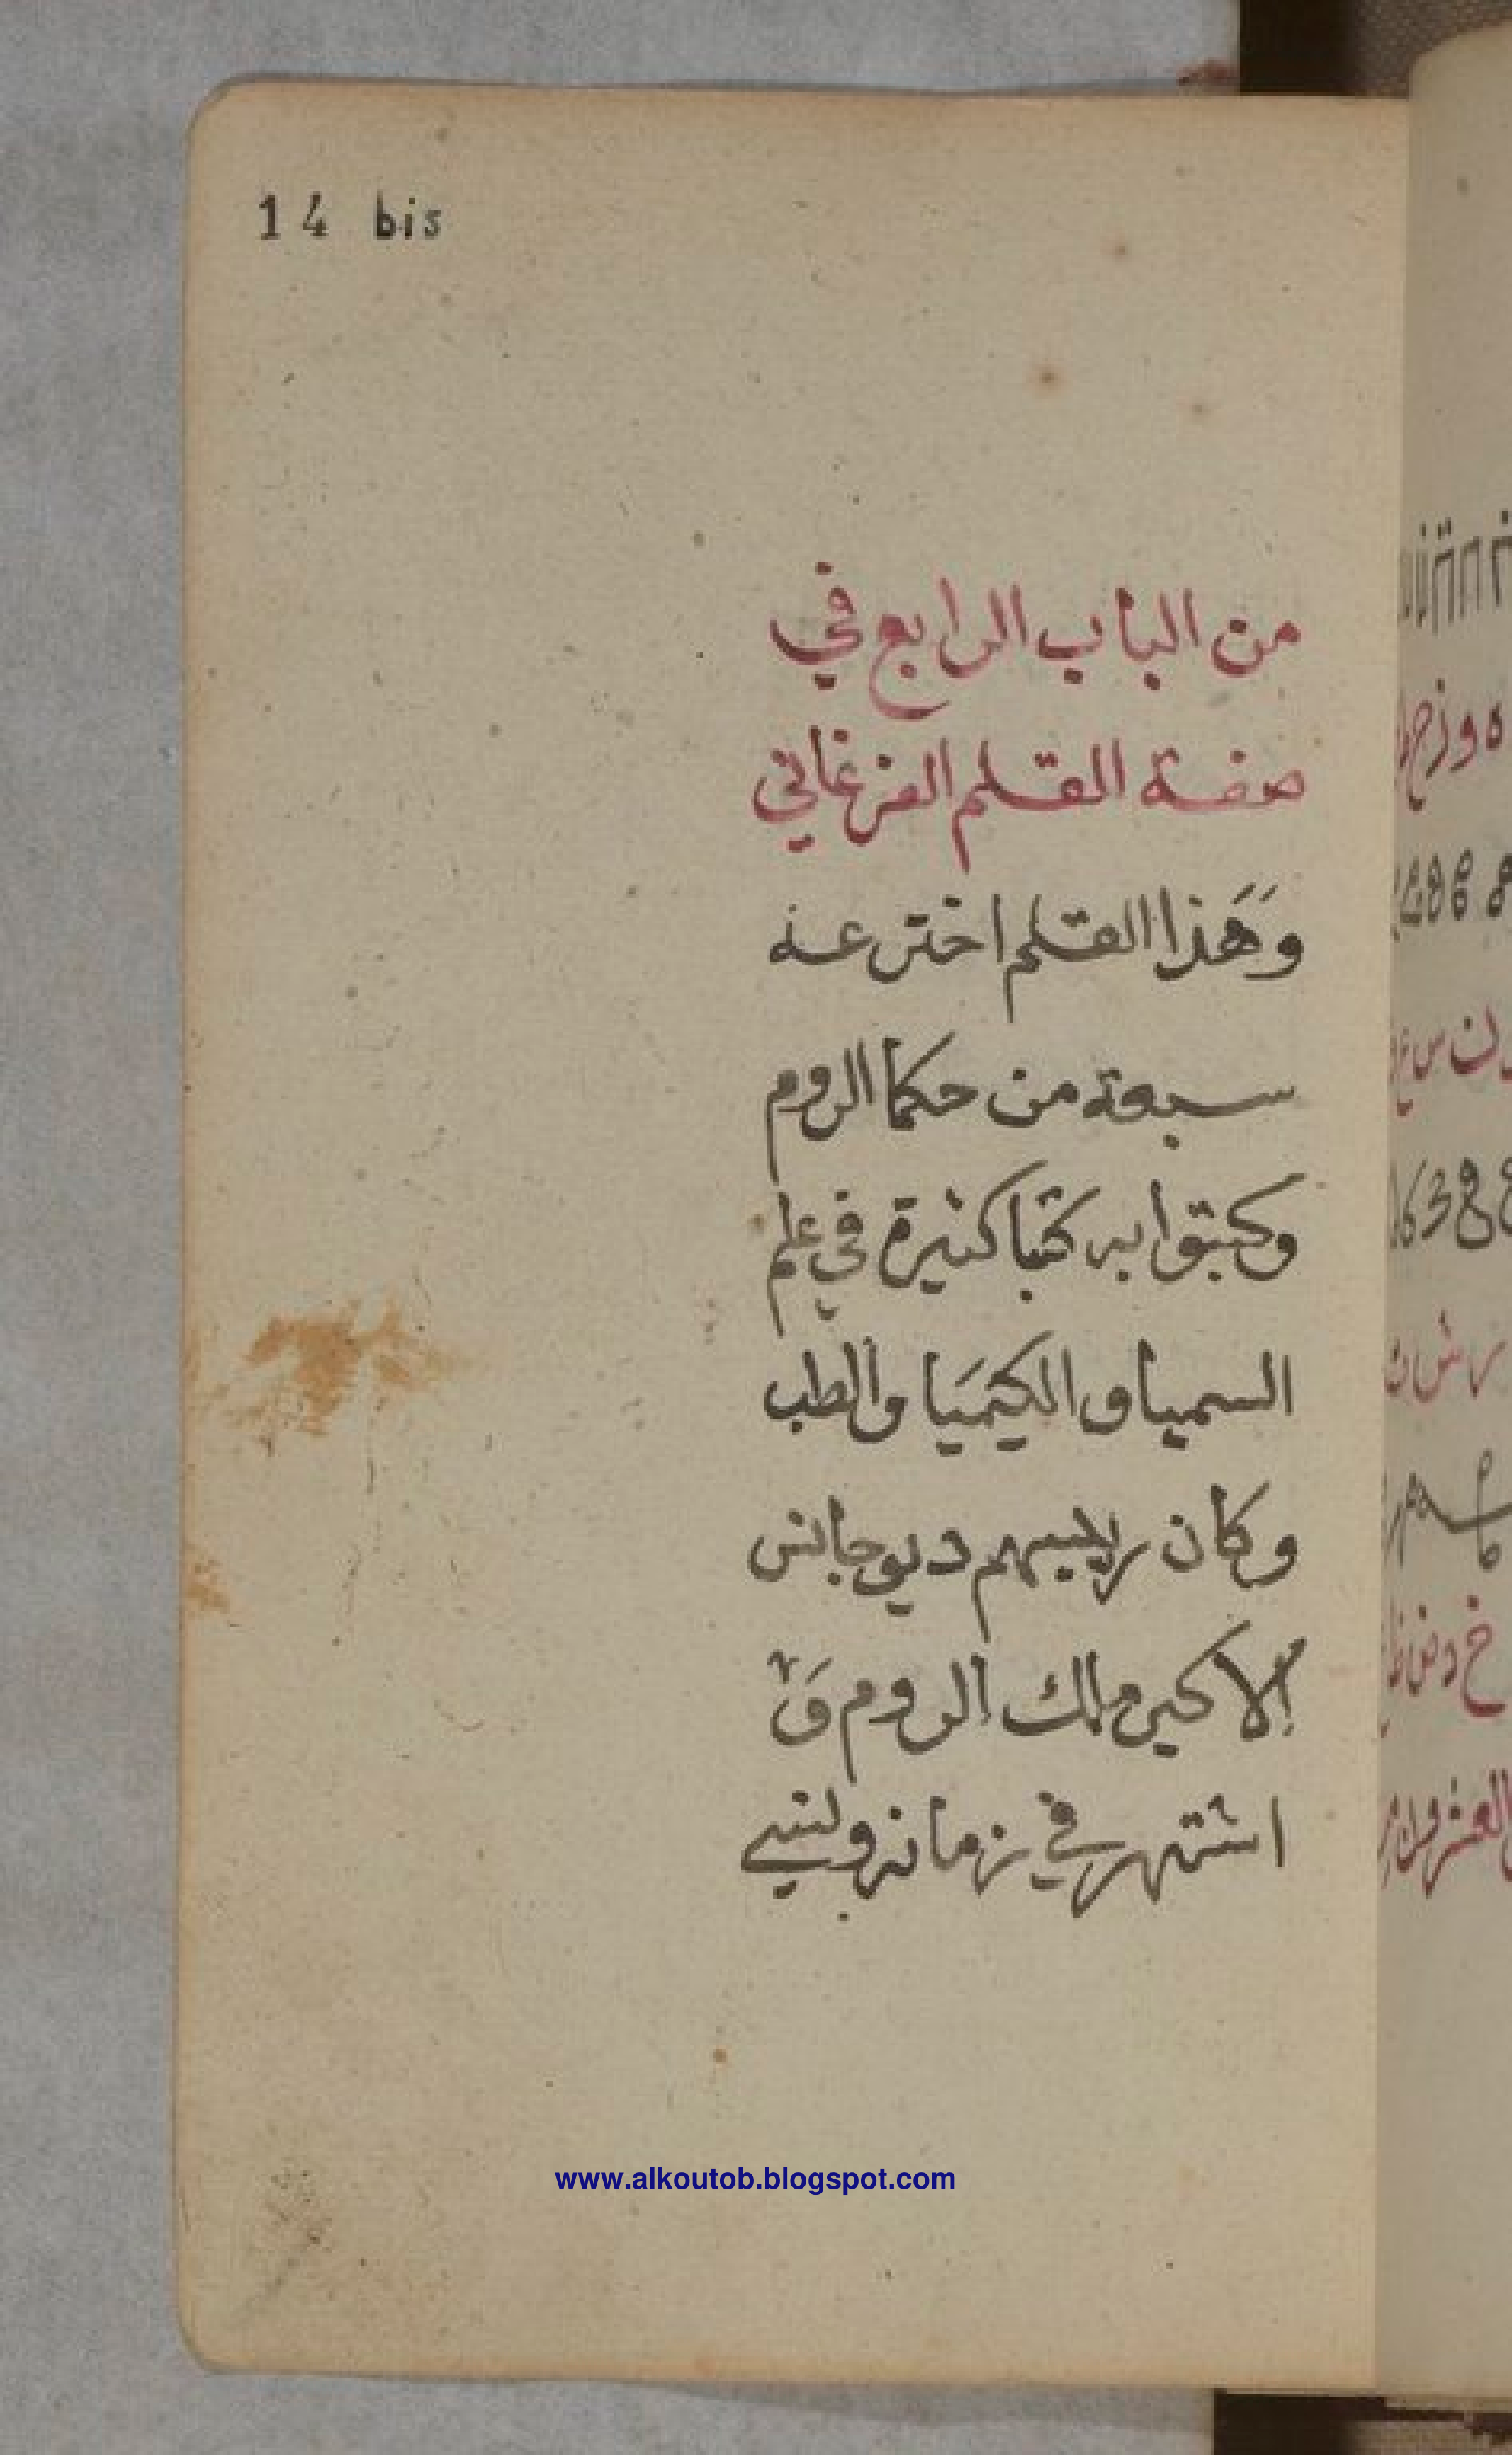 14 bis
من الباب الرابع في
صفة القلم الفرغاني
وَهَذا القلم اخترعه
سبعة من حكما الروم
وكتبوا به كتبا كثيرة في علم
السميا والكيميَا والطب
وكان رييسهم ديوجانس
الاكبر ملك الروم وَ
اشتهر في زمانه ولنسي
www.alkoutob.blogspot.com